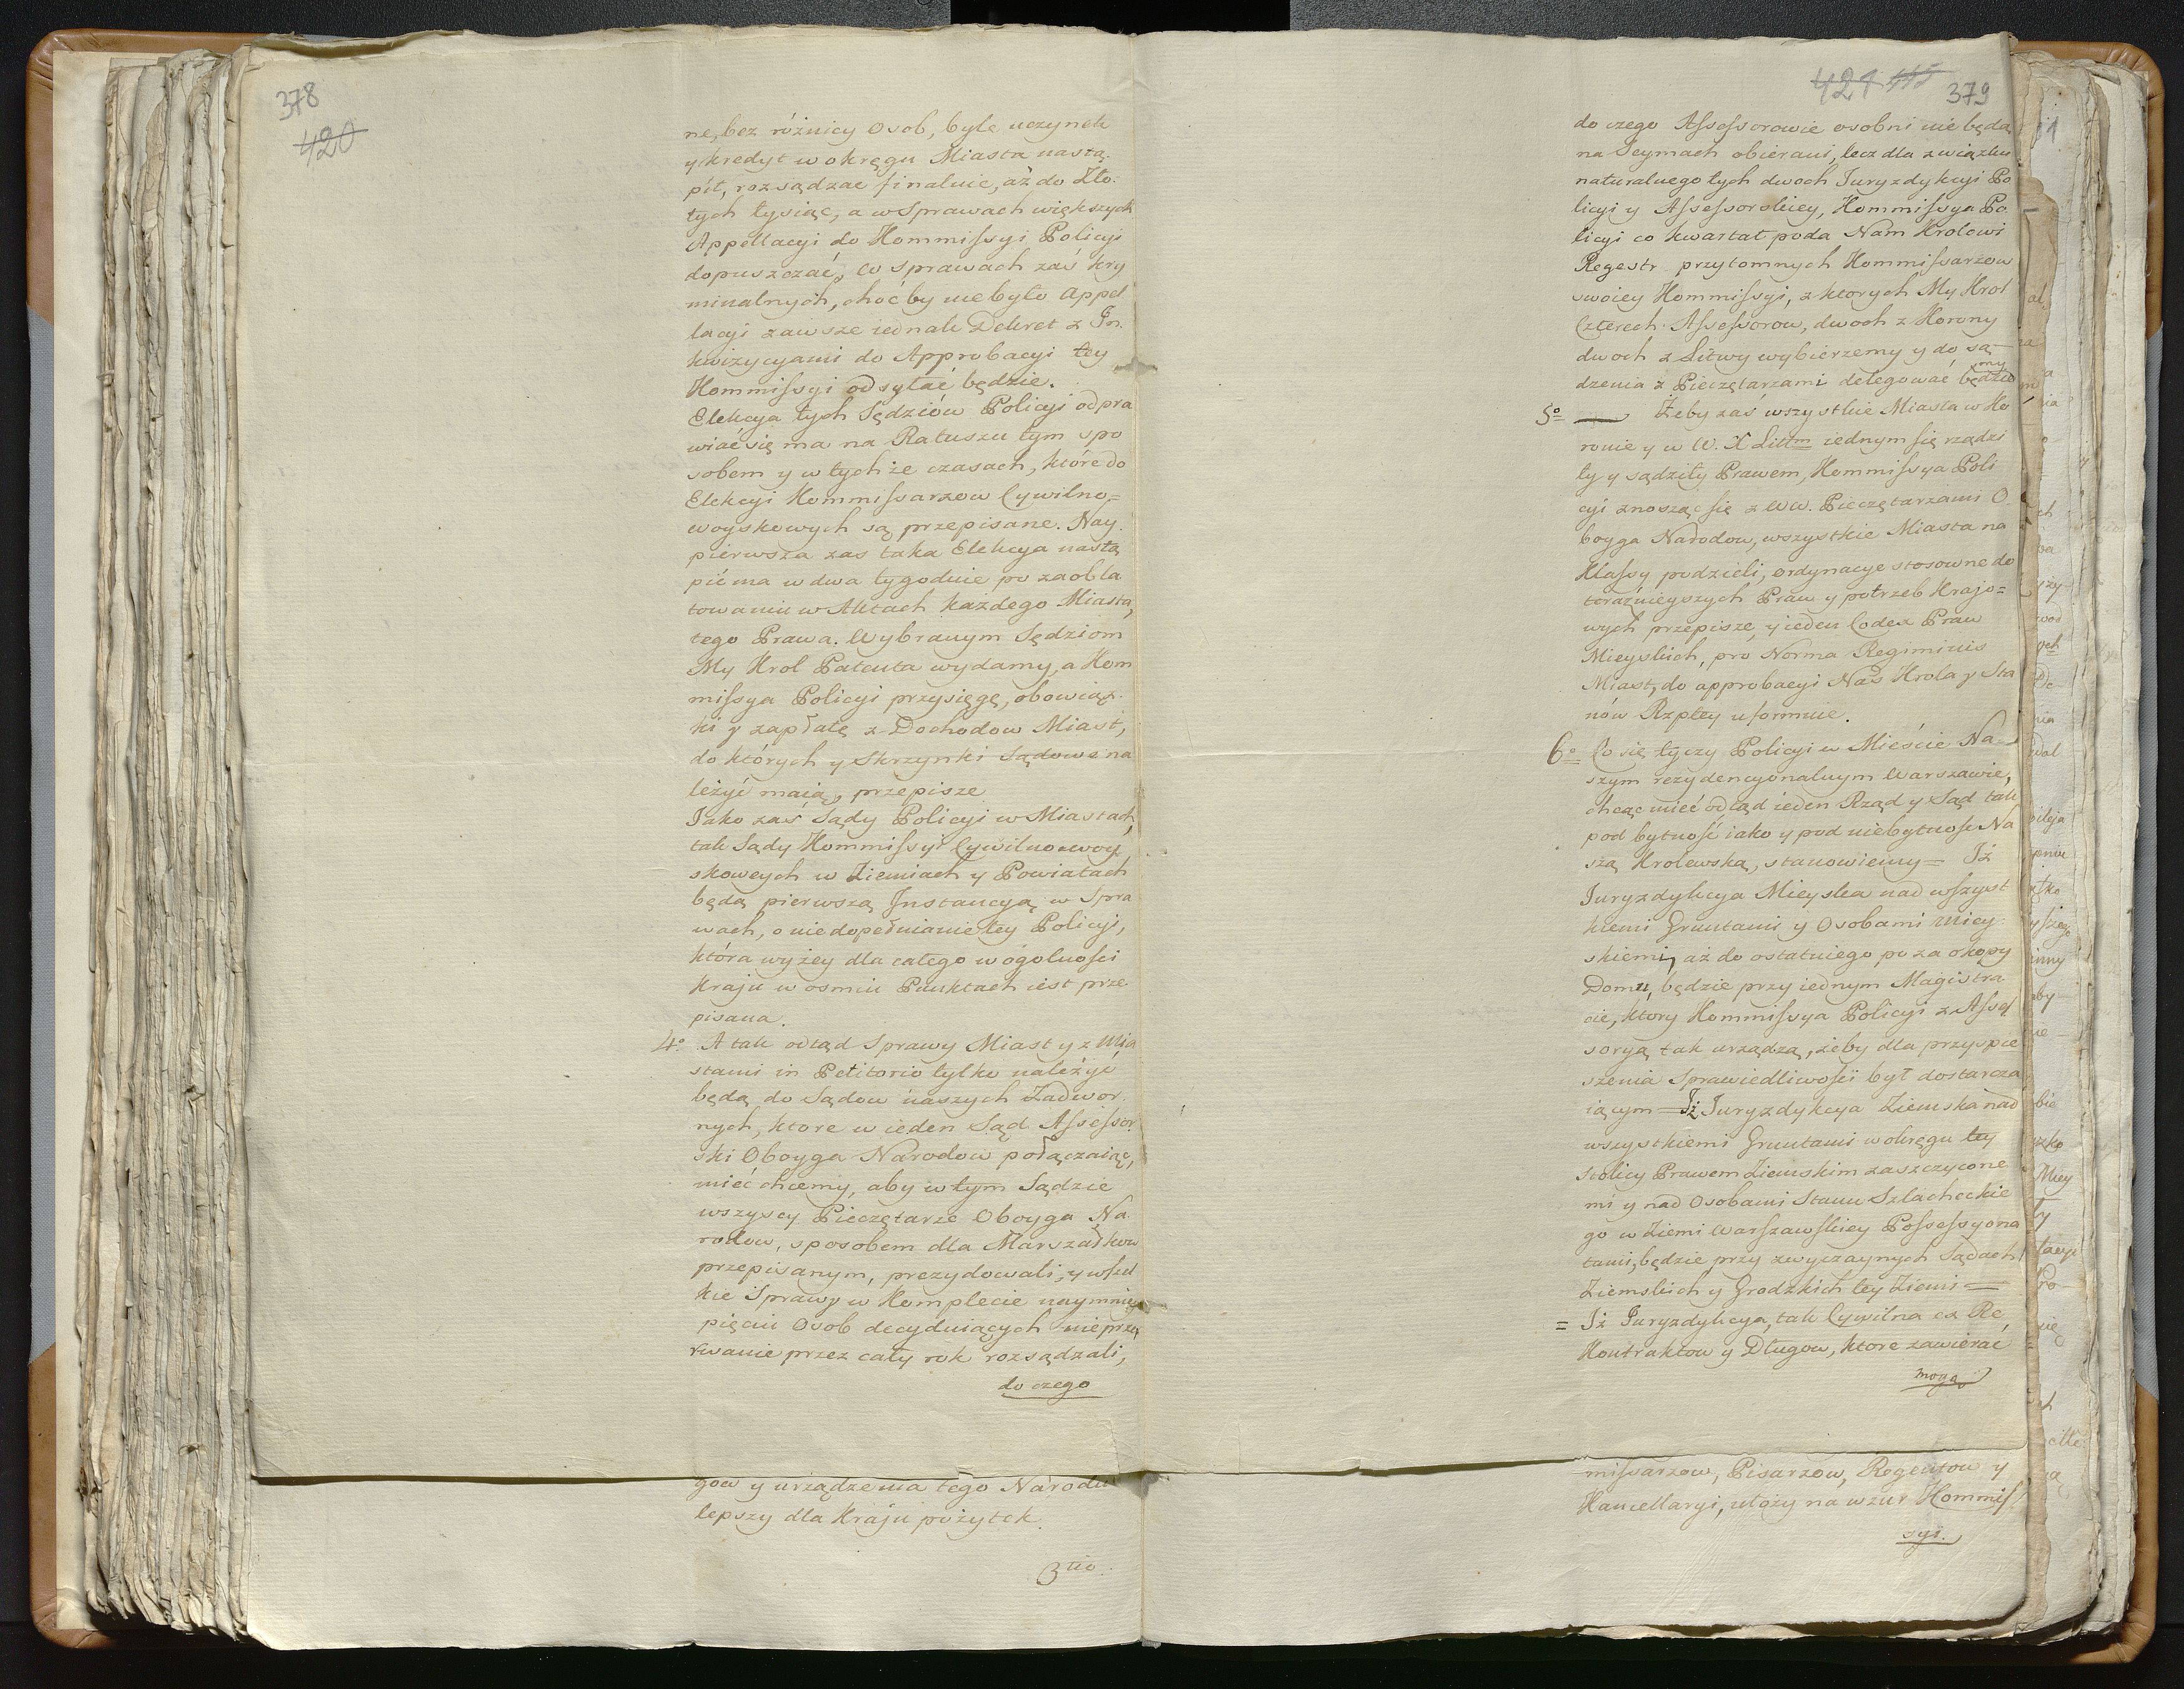 378
420
ne, bez różnicy Osob, byle uczynek
y kredyt w okręgu Miasta nastą-
pił, rozsądzać finalnie, aż do Zło-
tych tysiąc, a w Sprawach większych
Appellacyi do Kommissyi Policyi
dopuszczać, w Sprawach zaś kry
minalnych, choćby nie było Appel
lacyi zawsze iednak Dekret z In-
kwizycyami do Approbacyi tey
Kommissyi odsyłać będzie.
Elekcya tych Sędziów Policyi odpra
wiać się ma na Ratuszu tym spo
sobem y w tychże czasach, które do
Elekcyi Kommissarzow Cywilno=
woyskowych są przepisane. Nay-
pierwsza zas taka Elekcya nastą
pić ma w dwa tygodnie po zaobla
towaniu w Aktach każdego Miasta,
tego Prawa. Wybranym Sędziom
My Krol Patenta wydamy, a Kom
missya Policyi przysięgę, obowiąz-
ki y zapłatę z Dochodow Miast,
do których y Skrzynki Sądowe na
leżyć maią, przepisze
Jako zaś Sądy Policyi w Miastach,
tak Sądy Kommissyi Cywilno woy
skowych w Ziemiach y Powiatach
będą pierwszą Instancyą w Spra
wach, o niedopełnianie tey Policyi,
która wyżey dla całego w ogolności
Kraju w osmiu Punktach iest prze
pisana.
4o. A tak odtąd Sprawy Miast y z Mia
stami in Petitorio tylko należyć
będą do Sądow naszych Zadwor-
nych, ktore w ieden Sąd Assessor
ski Oboyga Narodow połączaiąc,
mieć chcemy, aby w tym Sądzie
wszyscy Pieczętarze Oboyga Na-
rodow, sposobem dla Marszałkow
przepisanym, prezydowali, y wszel
kie Sprawy w Komplecie naymniey
pięciu Osob decyduiących nieprze
rwanie przez cały rok rozsądzali,
do czego
gow y urządzenia tego Narodu
lepszy dla Kraju pożytek.
3tio.
421 415 379
do czego Assessorowie osobni nie będą
na Seymach obierani, lecz dla związku
naturalnego tych dwoch Juryzdykcyi Po
licyi y Assessorskiey, Kommissya Po-
licyi co kwartał poda Nam Krolowi
Regestr przytomnych Kommissarzow
swoiey Kommissyi, z ktorych My Krol
Czterech Assessorow, dwoch z Korony
dwoch z Litwy wybierzemy y do są-
dzenia z Pieczętarzami delegować będziemy
5o Żeby zaś wszystkie Miasta w Ko
ronie y w W. X Littm iednym się rządzi
ły y sądziły Prawem, Kommissya Poli
cyi znosząc się z WW. Pieczętarzami O
boyga Narodow, wszystkie Miasta na
Klassy podzieli, ordynacye stosowne do
teraźnieyszych Praw y potrzeb Krajo=
wych przepisze, y ieden Codex Praw
Mieyskich, pro Norma Regiminis
Miast, do approbacyi Nas Krola y Sta
nów Rzpltey uformuie.
6o Co się tyczy Policyi w Mieście Na-
szym rezydencyonalnym Warszawie,
chcąc mieć odtąd ieden Rząd y Sąd tak
pod bytność iako y pod niebytność Na
szą Krolewską, stanowiemy = Iż
Juryzdykcya Mieyska nad wszyst
kiemi Gruntami y Osobami Miey-
skiemi, aż do ostatniego po za okopy
Domu, będzie przy iednym Magistra-
cie, ktory Kommissya Policyi z Asses
soryą tak urządzą, żeby dla przyspie
szenia Sprawiedliwości był dostarcza
iącym = Iż Juryzdykcya Ziemska nad
wszystkiemi Gruntami w okręgu tey
Stolicy Prawem Ziemskim zaszczycone
mi y nad Osobami Stanu Szlacheckie
go w Ziemi Warszawskiey Possessyona
tami, będzie przy zwyczaynych Sądach
Ziemskich y Grodzkich tey Ziemi =
= Iż Juryzdykcya, tak Cywilna ex Re
Kontraktow y Długow, ktore zawierać
mogą
missarzow, Pisarzow, Regentow y
Kancellaryi, ułoży na wzur Kommis
syi.